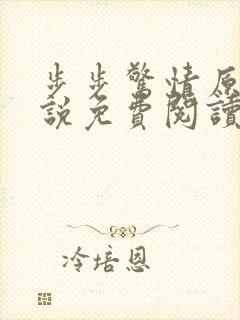 步步驚情原
說免費閱讀
冷培恩